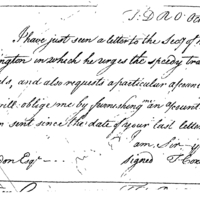 I have just seen a letter to the Secy of
ington in which he urges the speedy tra
ls, and also requests a particular accoun
will oblige me by furnishing an Account
n sent since the date of your last letter
am. Sir
don Esqr
signed T. Cox